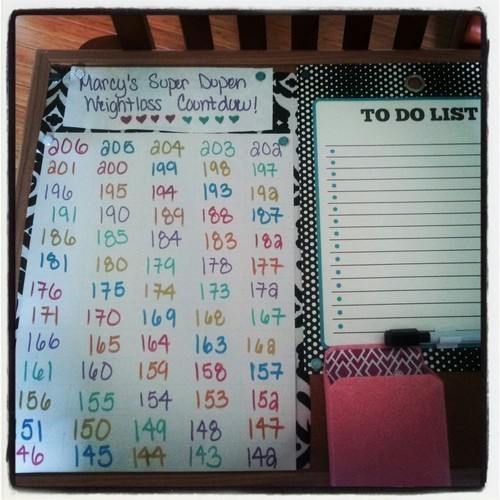 Marcy's Super Duper
Weightloss Countdow!
206 205 204 203 202
201 200 199 198 197
196 195 194 193 192
191 190 189 188 187
186 185 184 183 182
181 180 179 178 177
176 175 174 173 172
171 170 169 168 167
166 165 164 163 162
161 160 159 158 157
156 155 154 153 152
51 150 149 148 147
46 145 144 143 142
TO DO LIST